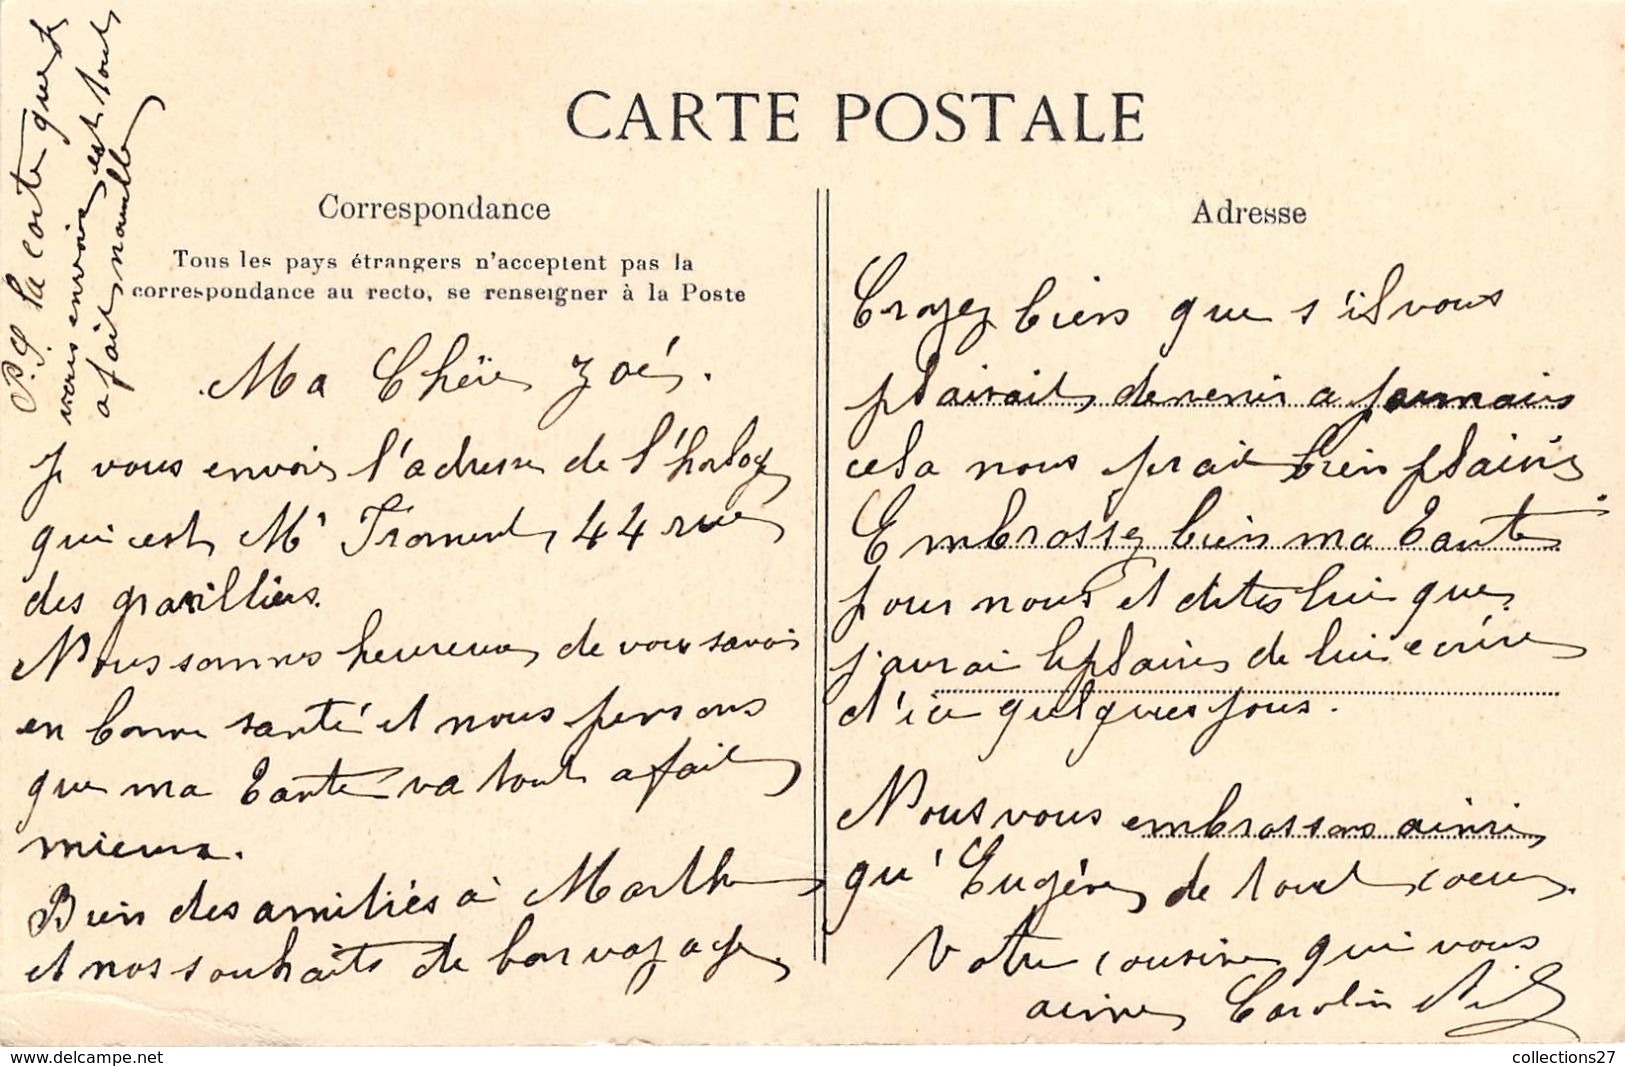 CARTE POSTALE
Correspondance
Tous les pays étrangers n'acceptent pas la
correspondance au recto, se renseigner à la Poste
P.S. la carte que je
vous envoie est tout
a fait nouvelle
Ma Chère Zoé.
Je vous envoie l'adresse de l'horloger
qui est Mr Froment, 44 rue
des gravilliers.
Nous sommes heureux de vous savoir
en bonne santé et nous pensons
que ma Tante va tout a fait
mieux.
Bien des amitiés à Marthe
et nos souhaits de bon voyage.
Adresse
Croyez bien que s'il vous
plairait de venir a
cela nous ferait bien plaisir
Embrassez bien ma Tante
pour nous et dites lui que
j'aurai le plaisir de lui ecrire
d'ici quelques jours.
Nous vous embrassons ainsi
qu'Eugène de tout coeur.
Votre cousine qui vous
aime Caroline
collections27